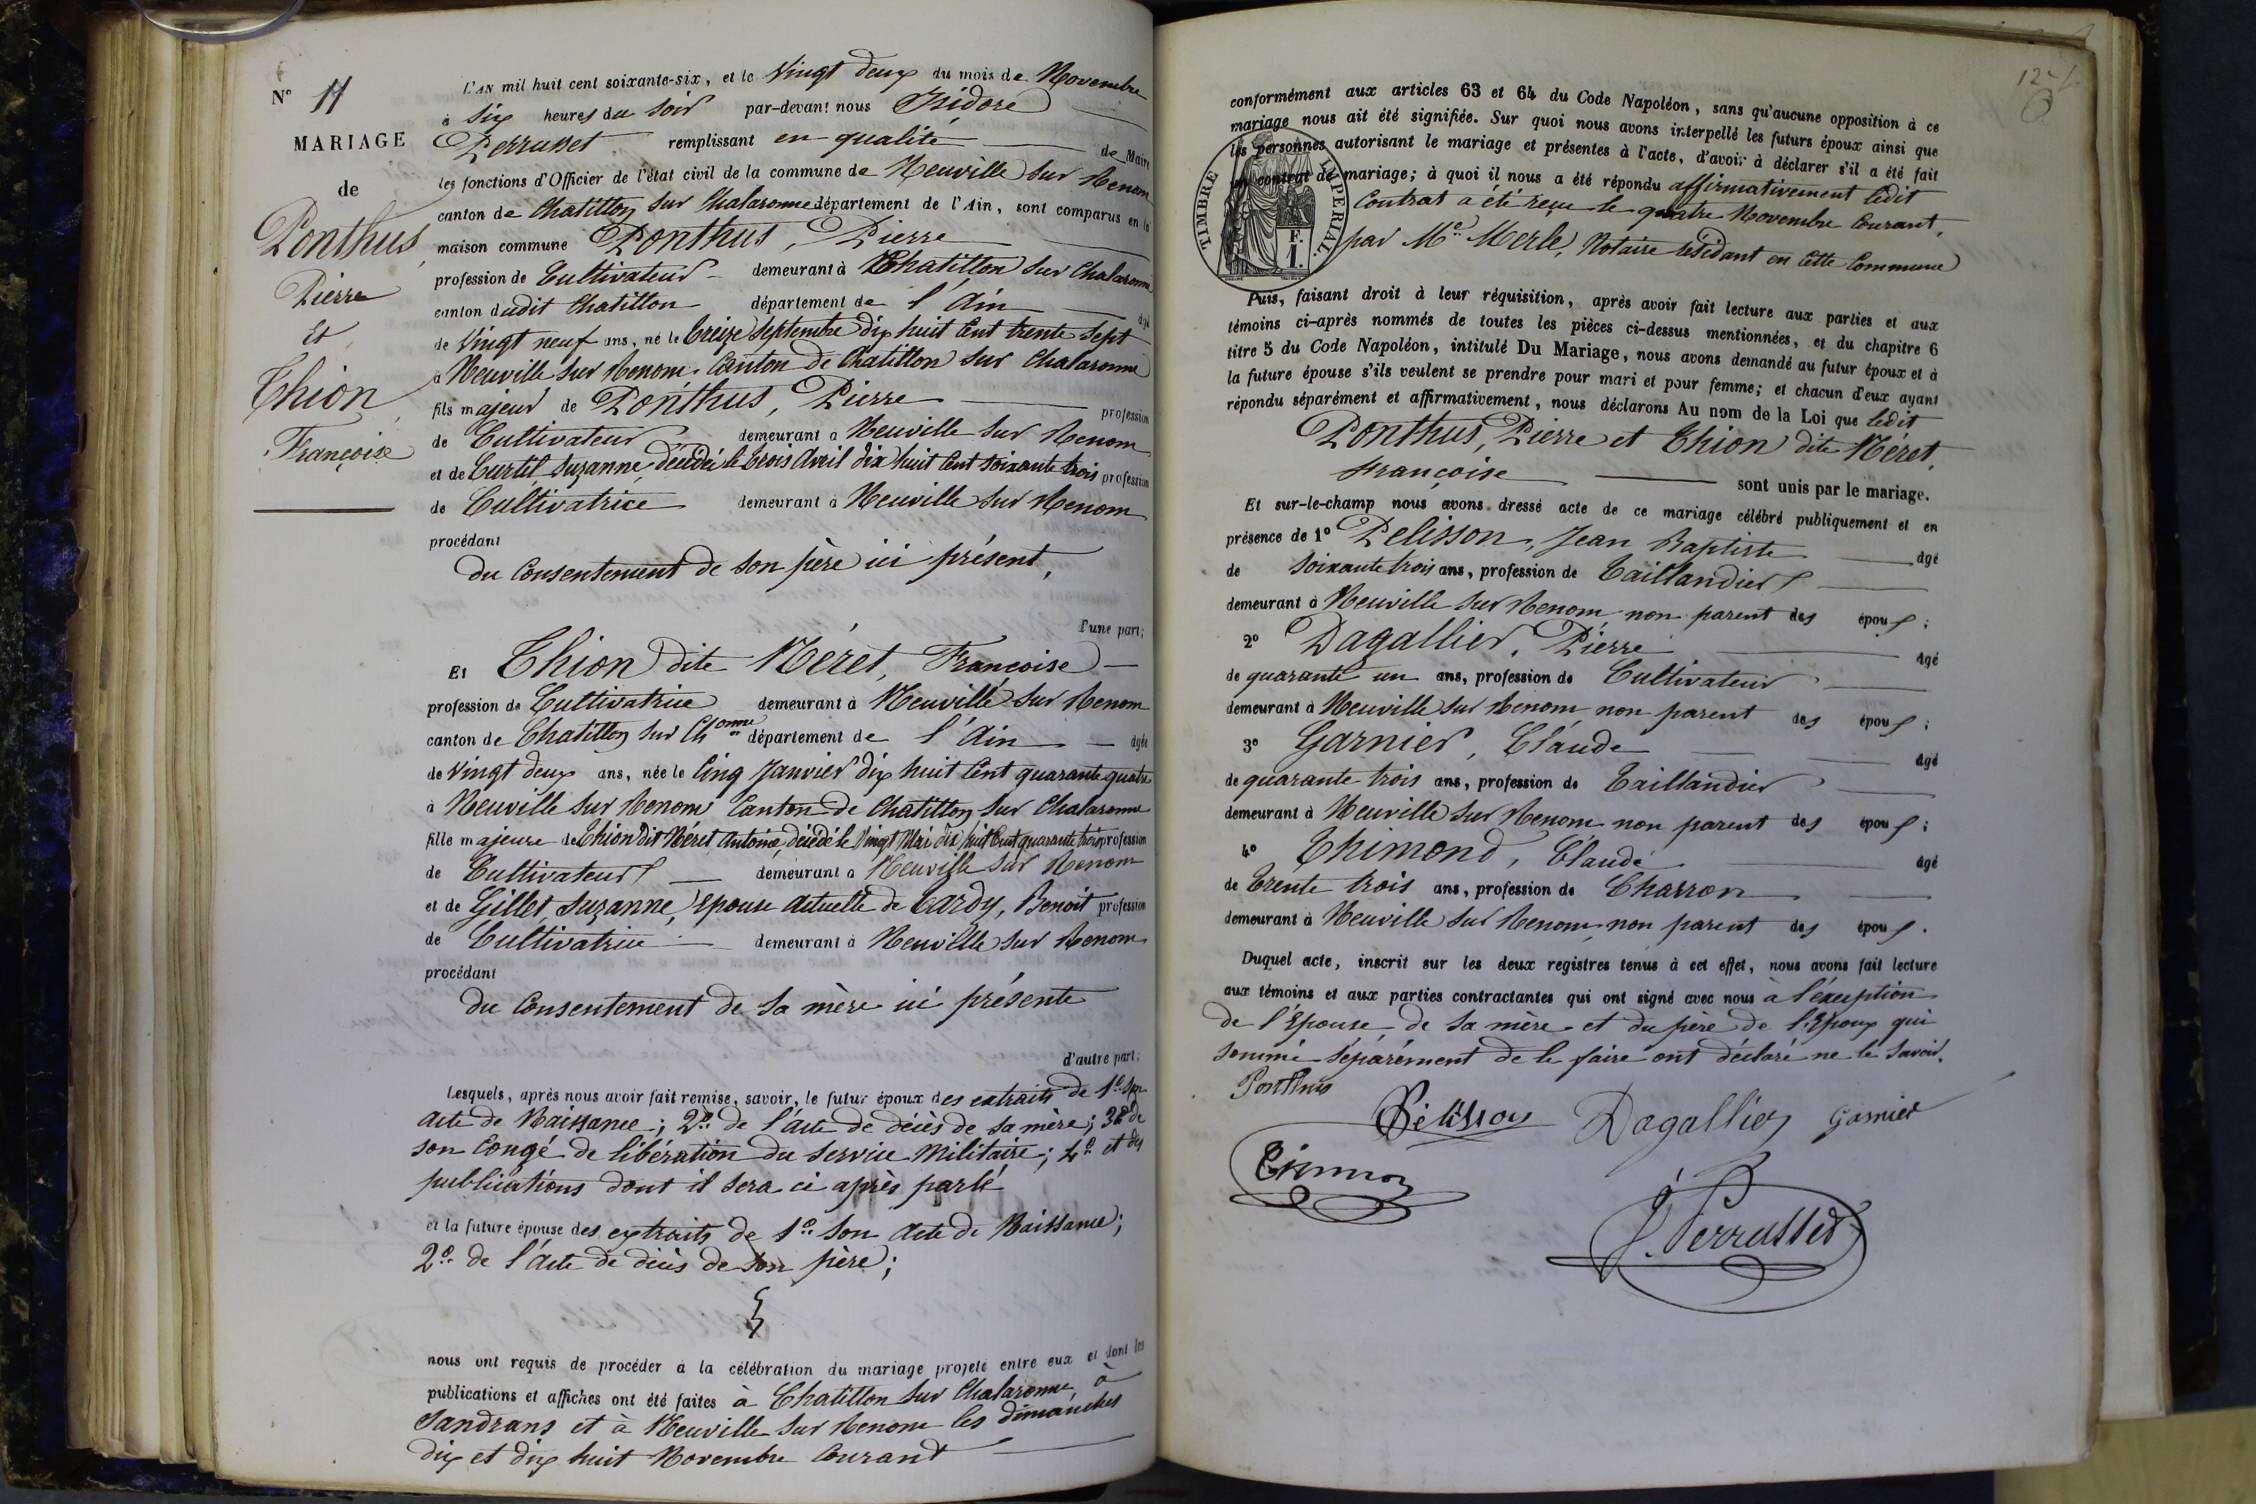 N° 11
MARIAGE
de
Ponthus,
Pierre
et
Thion,
Françoise
L'AN mil huit cent soixante-six, et le Vingt deux du mois de Novembre
à Six heures du Soir par-devant nous Isidore
Perrusset remplissant en qualité de Maire
les fonctions d'Officier de l'état civil de la commune de Neuville sur Renom
canton de Chatillon sur Chalaronne département de l'Ain, sont comparus en la
maison commune Ponthus, Pierre
profession de Cultivateur demeurant à Chatillon sur Chalaronne
canton dudit Chatillon département de l'Ain agé
de Vingt neuf ans, né le treize Septembre dix huit Cent trente Sept
à Neuville sur Renom, Canton de Chatillon sur Chalaronne
fils majeur de Ponthus, Pierre profession
de Cultivateur demeurant à Neuville sur Renom
et de Curtil Suzanne, décédée le trois Avril dix huit Cent soixante trois profession
de Cultivatrice demeurant à Neuville sur Renom
procédant
du Consentement de son père ici présent,
l'une part;
Et Thion dite Néret, Françoise
profession de Cultivatrice demeurant à Neuville sur Renom
canton de Chatillon sur Chonne département de l'Ain agée
de Vingt deux ans, née le Cinq Janvier dix huit Cent quarante quatre
à Neuville sur Renom Canton de Chatillon sur Chalaronne
fille majeure de Thion dit Néret Antoine, décédé le Vingt Mai dix huit Cent quarante trois profession
de Cultivateur demeurant à Neuville sur Renom
et de Gillet, Suzanne, Epouse actuelle de Cardy, Benoit profession
de Cultivatrice demeurant à Neuville sur Renom
procédant
du Consentement de sa mère ici présente
d'autre part;
Lesquels, après nous avoir fait remise, savoir, le futur époux des extraits de 1° Son
Acte de Naissance; 2° de l'acte de décès de sa mère; 3° de
son Congé de libération du service Militaire; 4° et des
publications dont il sera ci après parlé
et la future épouse des extraits de 1° Son Acte de Naissance;
2° de l'Acte de décès de son père;
nous ont requis de procéder à la célébration du mariage projeté entre eux et dont les
publications et affiches ont été faites à Chatillon sur Chalaronne, à
Sandrans et à Neuville sur Renom les dimanches
dix et dix huit Novembre Courant
conformément aux articles 63 et 64 du Code Napoléon, sans qu'aucune opposition à ce
mariage nous ait été signifiée. Sur quoi nous avons interpellé les futurs époux ainsi que
les personnes autorisant le mariage et présentes à l'acte, d'avoir à déclarer s'il a été fait
un contrat de mariage; à quoi il nous a été répondu affirmativement ledit
Contrat a été reçu le quatre Novembre Courant,
par Me Merle, Notaire résidant en Cette Commune
TIMBRE IMPERIAL.
F.
1.
Puis, faisant droit à leur réquisition, après avoir fait lecture aux parties et aux
témoins ci-après nommés de toutes les pièces ci-dessus mentionnées, et du chapitre 6
titre 5 du Code Napoléon, intitulé Du Mariage, nous avons demandé au futur époux et à
la future épouse s'ils veulent se prendre pour mari et pour femme; et chacun d'eux ayant
répondu séparément et affirmativement, nous déclarons Au nom de la Loi que ledit
Ponthus, Pierre et Thion dite Néret,
Françoise sont unis par le mariage.
Et sur-le-champ nous avons dressé acte de ce mariage célébré publiquement et en
présence de 1° Pelisson, Jean Baptiste agé
de Soixante trois ans, profession de Taillandier
demeurant à Neuville sur Renom non parent des époux;
2° Dagallier, Pierre agé
de quarante un ans, profession de Cultivateur
demeurant à Neuville sur Renom non parent des époux;
3° Garnier, Claude agé
de quarante trois ans, profession de Taillandier
demeurant à Neuville sur Renom non parent des époux;
4° Thimond, Claude agé
de trente trois ans, profession de Charron
demeurant à Neuville sur Renom, non parent des époux.
Duquel acte, inscrit sur les deux registres tenus à cet effet, nous avons fait lecture
aux témoins et aux parties contractantes qui ont signé avec nous à l'éxeception
de l'Epouse de sa mère et du père de l'Epoux qui
sommé séparément de le faire ont déclaré ne le savoir.
Ponthus
Pélisson Dagallier Garnier
J. Perrusset